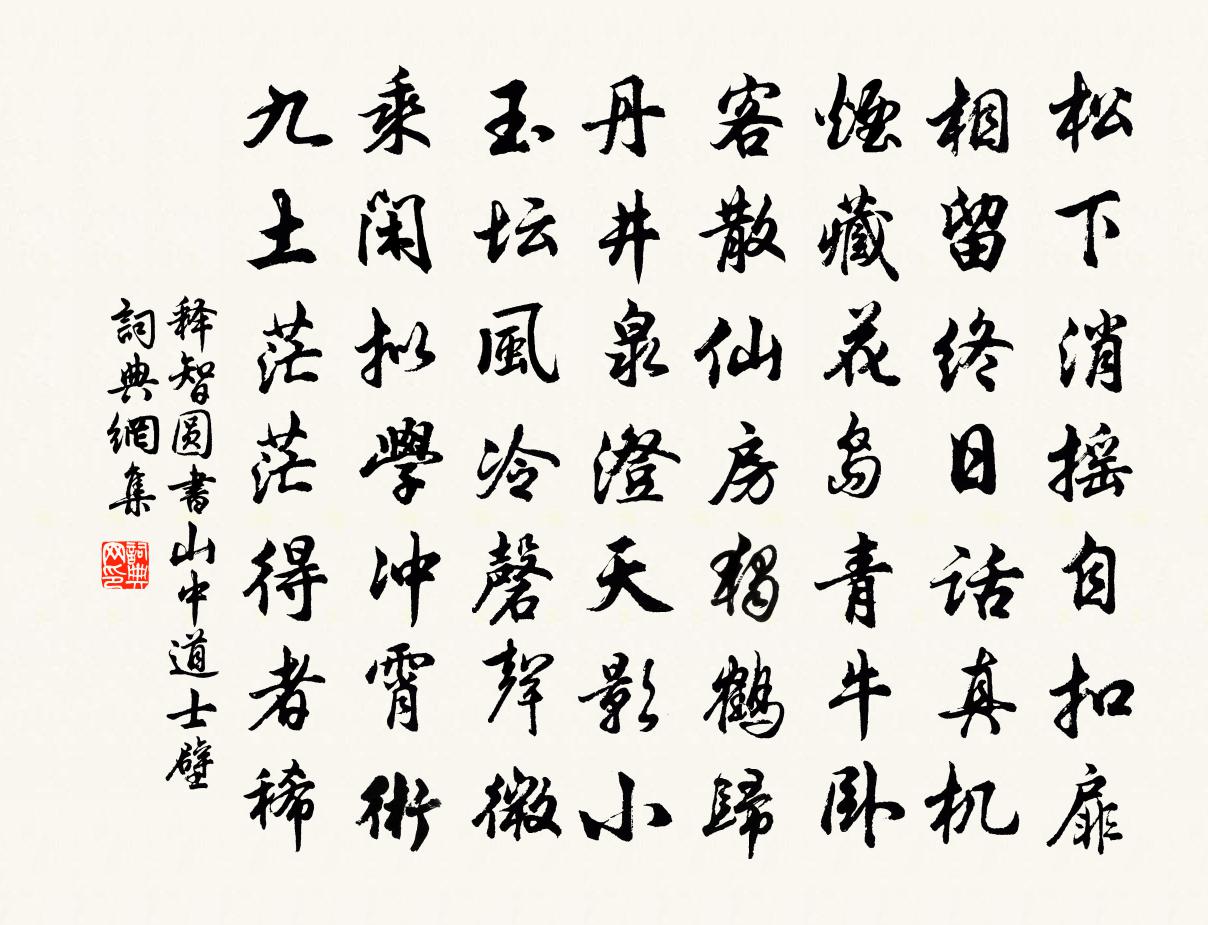 松下消摇自扣扉
相留终日话真机
煙藏花岛青牛卧
客散仙房独鶴歸
丹井泉澄天影小
玉坛風冷磬聲微
乘闲拟學冲霄術
九土茫茫得者稀
释智圆書山中道士壁
詞典網集
詞典网印